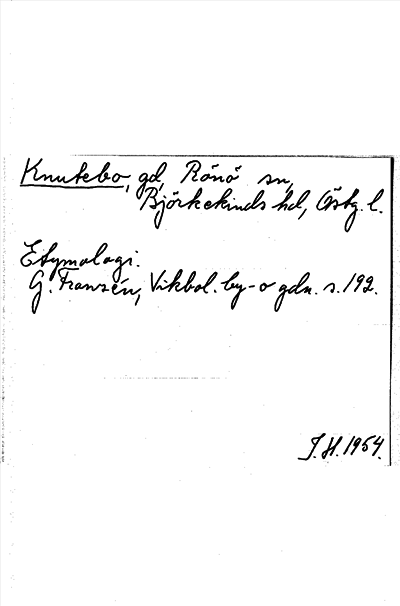 Knutebo, gd, Rönö sn,
Björkekinds hd, Östg. l.
Etymologi.
G. Franzén, Vikbol. by- o gdn. s. 192.
J. H. 1954.